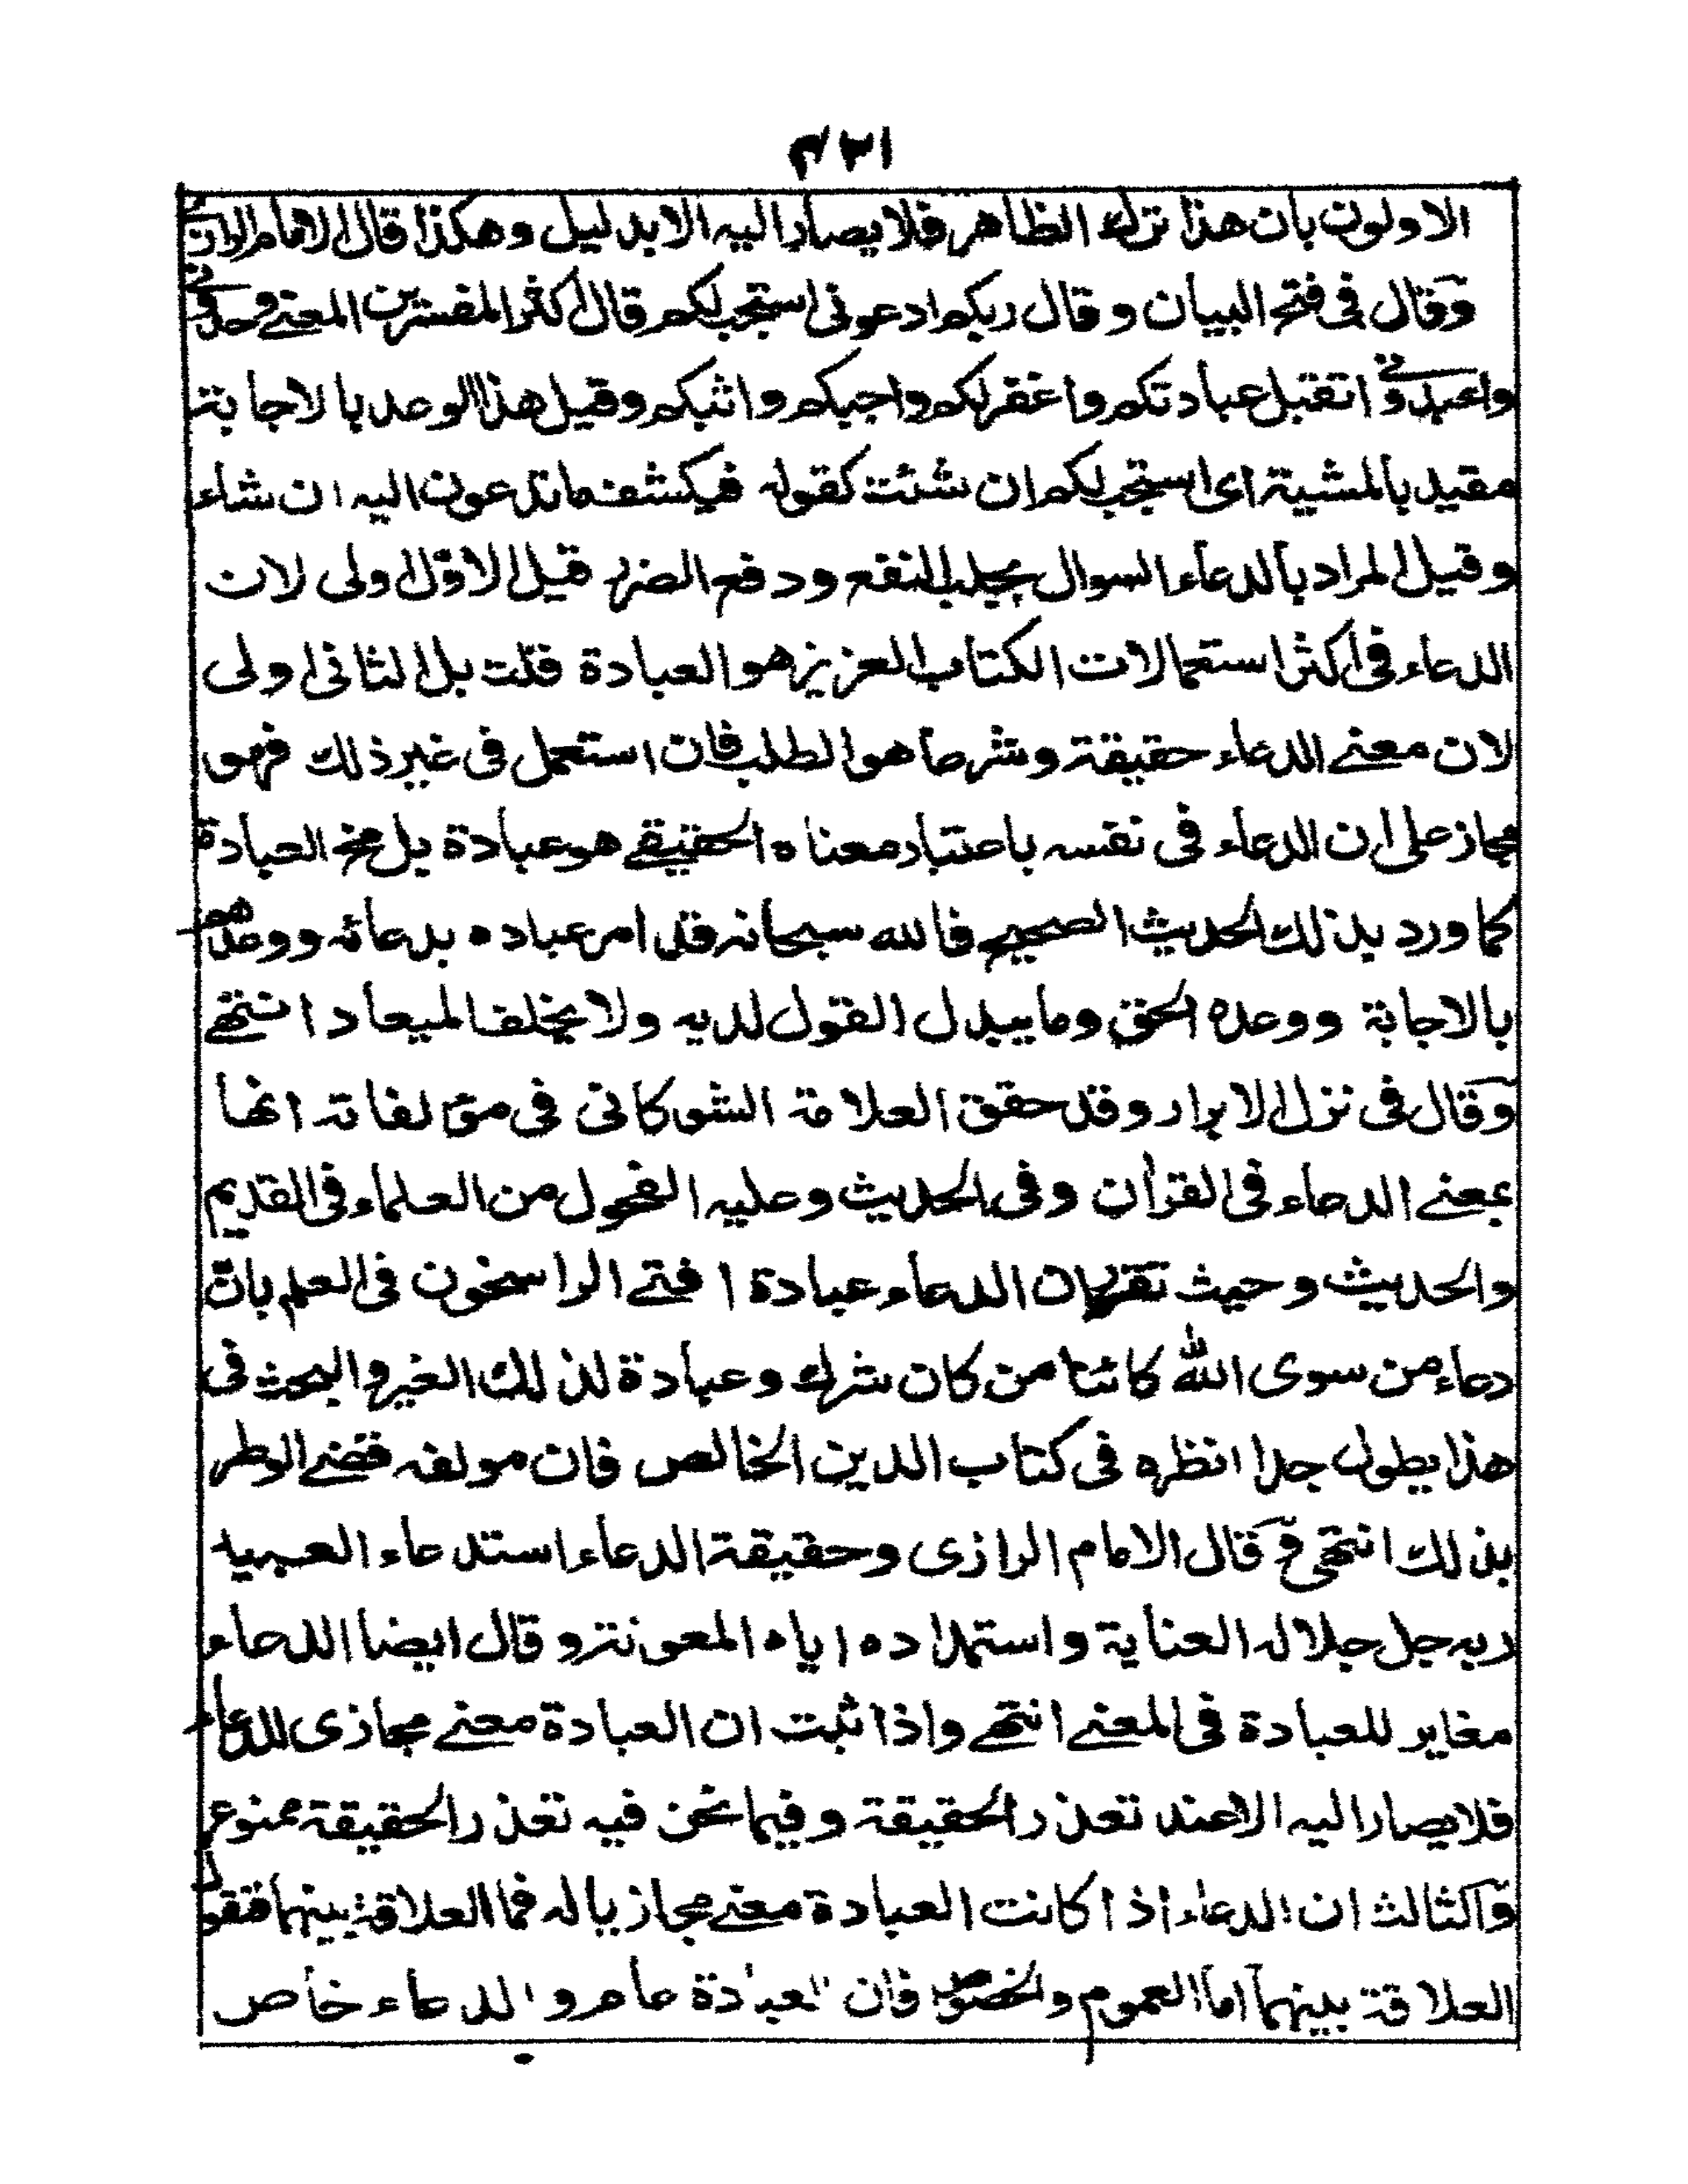 الاولون بان هذا ترك الظاهر فلا يصار اليه الا بدليل وهكذا قال الامام الرازي
وقال في فتح البيان وقال ربكم ادعوني استجب لكم قال اكثر المفسرين المعنى وحدوني
واعبدوني اتقبل عبادتكم واغفر لكم واجيبكم واثيبكم وقيل هذا الوعد بالاجابة
مقيد بالمشية اي استجب لكم ان شئت كقوله فيكشف ما تدعون اليه ان شاء
وقيل المراد بالدعاء السوال بجلب النفع ودفع الضر قيل الاول اولى لان
الدعاء في اكثر استعمالات الكتاب العزيز هو العبادة قلت بل الثاني اولى
لان معنى الدعاء حقيقة وشرعا هو الطلب فان استعمل في غير ذلك فهو
مجاز على ان الدعاء في نفسه باعتبار معناه الحقيقي هو عبادة بل مخ العبادة
كما ورد بذلك الحديث الصحيح فالله سبحانه قد امر عباده بدعائه ووعدهم
بالاجابة ووعده الحق وما يبدل القول لديه ولا يخلف الميعاد انتهى
وقال في نزل الابرار وقد حقق العلامة الشوكاني في مؤلفاته انها
بمعنى الدعاء في القرأن وفي الحديث وعليه الفحول من العلماء في القديم
والحديث وحيث تقرر بان الدعاء عبادة افتى الراسخون في العلم بان
دعاء من سوى الله كائنا من كان شرك وعبادة لذلك الغير والبحث في
هذا يطول جدا انظره في كتاب الدين الخالص فان مولفه قضى الوطر
بذلك انتهى وقال الامام الرازي وحقيقة الدعاء استدعاء العبد
ربه جل جلاله العناية واستمداده اياه المعونة وقال ايضا الدعاء
مغاير للعبادة في المعنى انتهى واذا ثبت ان العبادة معنى مجازي للدعاء
فلا يصار اليه الا عند تعذر الحقيقة وفيما نحن فيه تعذر الحقيقة ممنوع
والثالث ان الدعاء اذا كانت العبادة معنى مجازيا له فما العلاقة بينهما فنقول
العلاقة بينهما اما العموم والخصوص فان العبادة عام والدعاء خاص